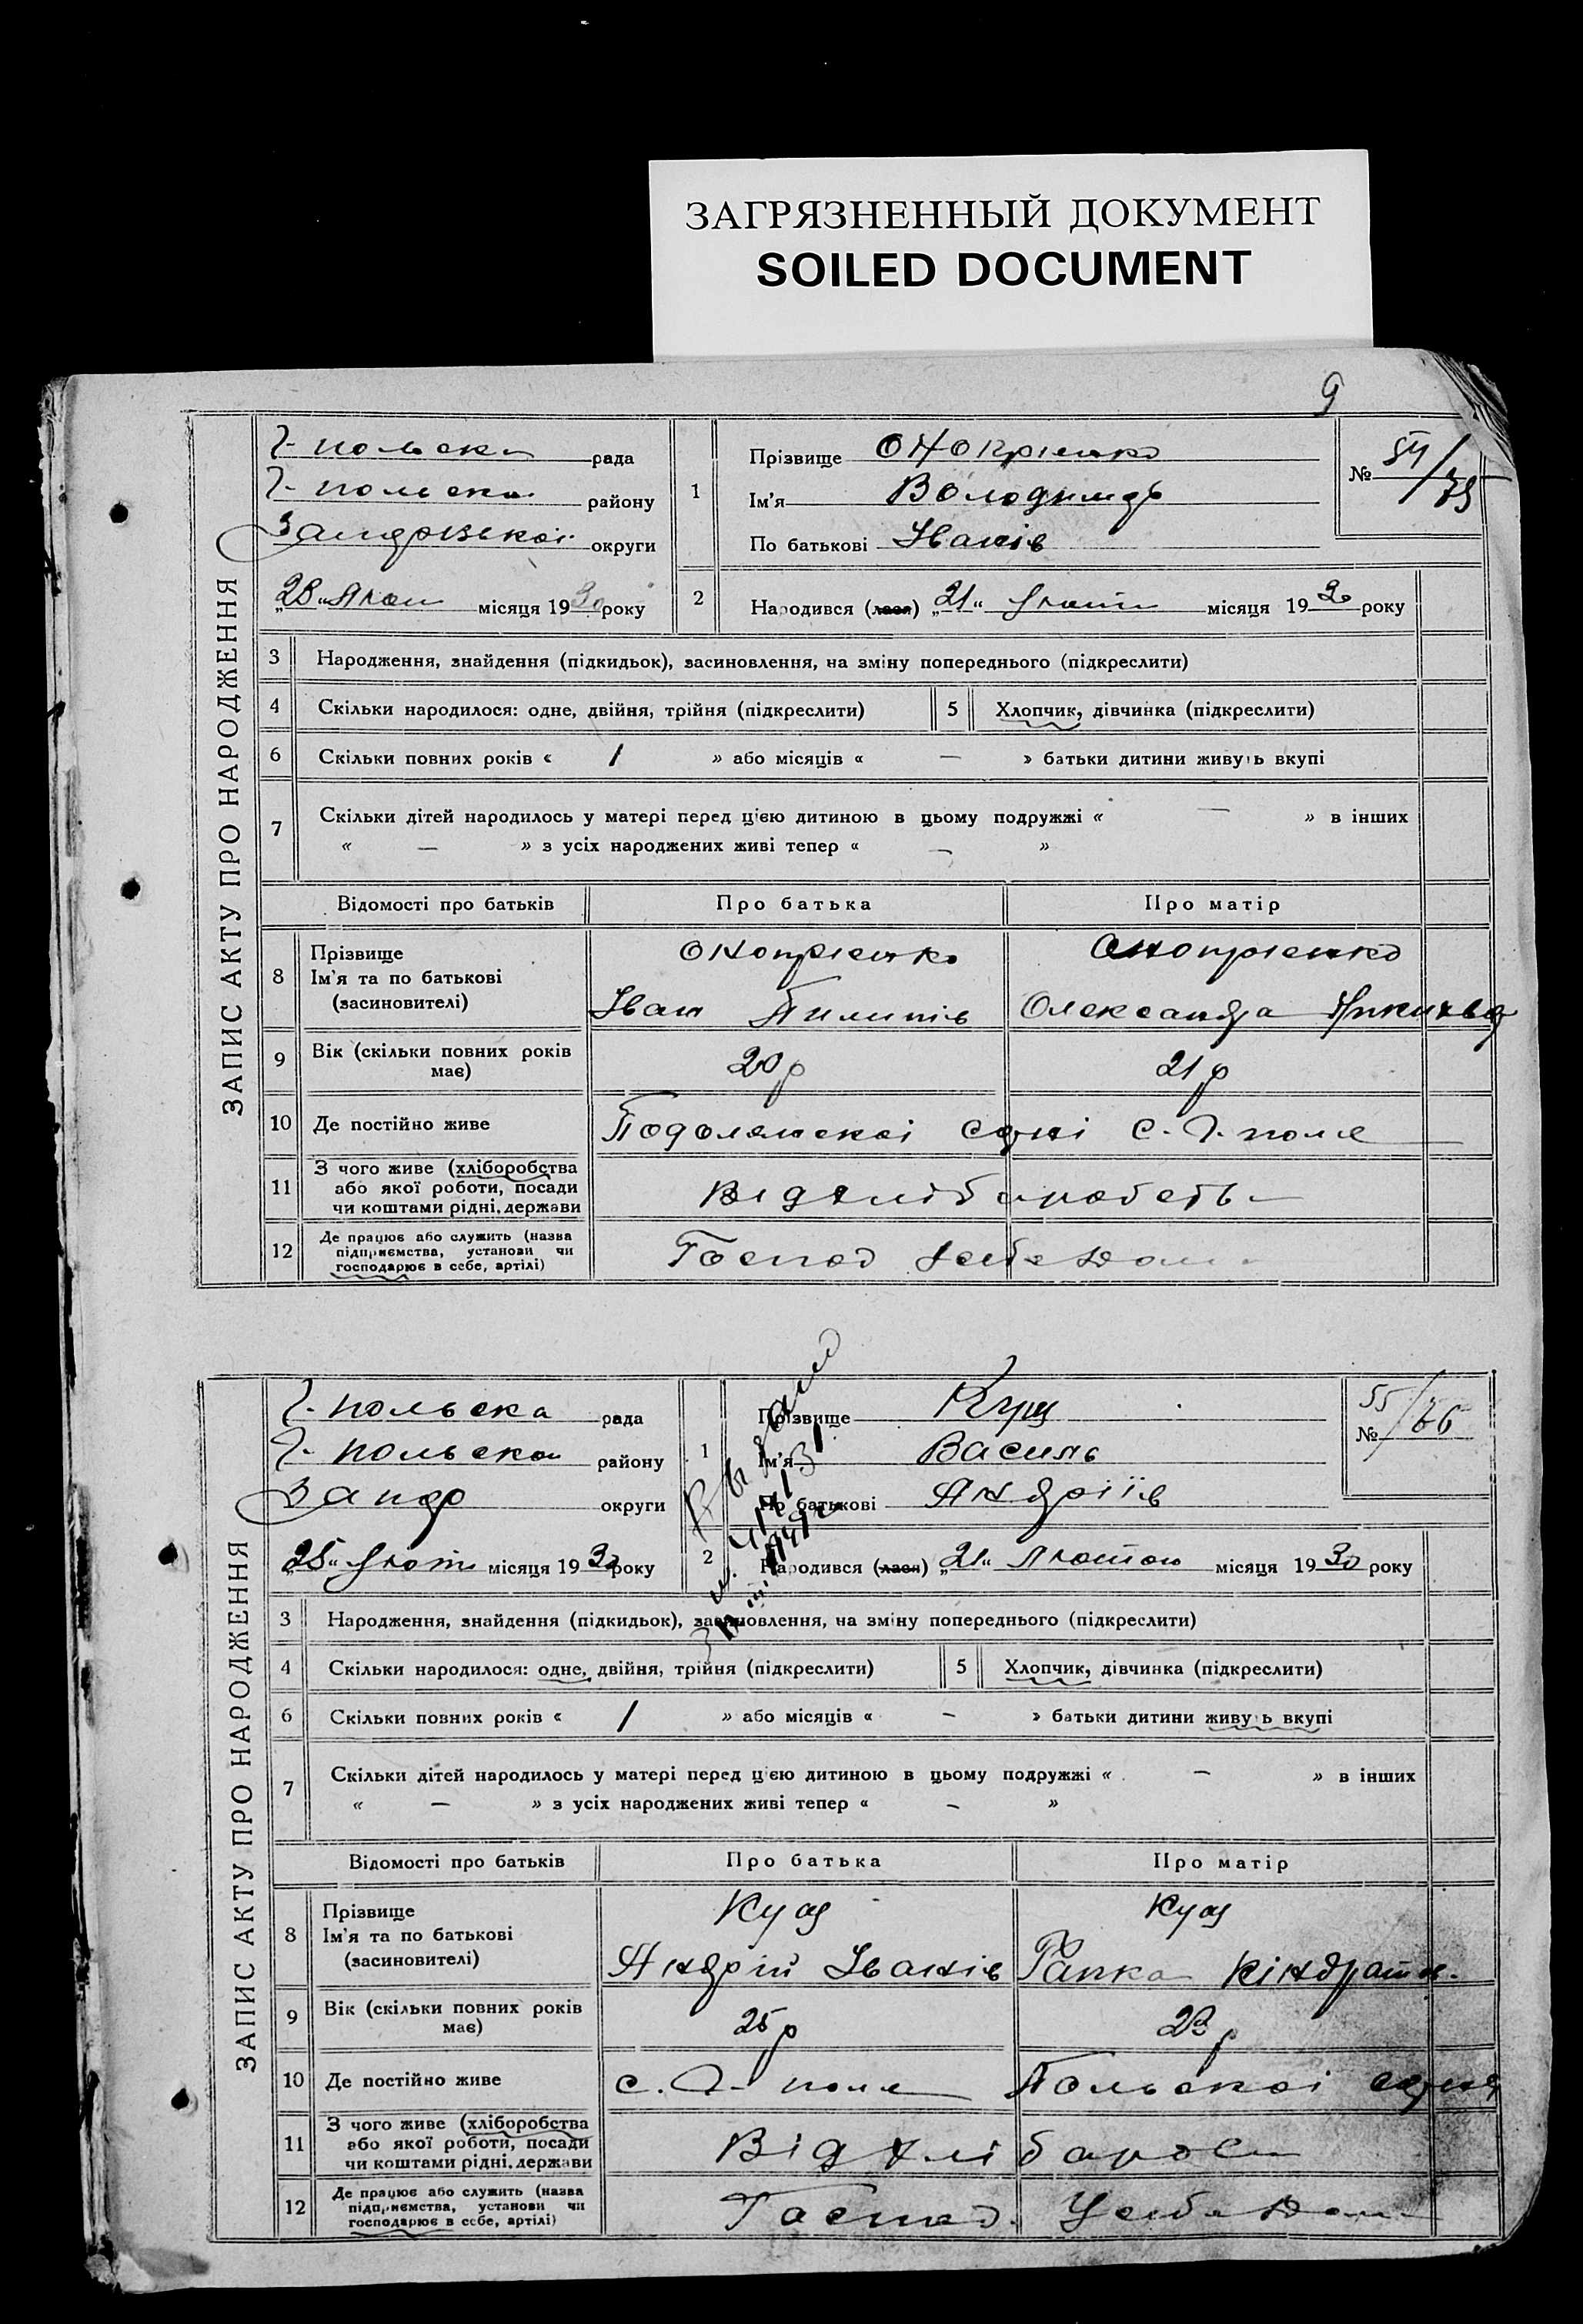 ЗАГРЯЗНЕННЫЙ ДОКУМЕНТ
SOILED DOCUMENT
9
ЗАПИС АКТУ ПРО НАРОДЖЕННЯ
Г-польска рада
Г-польска району
округи
"28" місяця 1930 року
1
Прізвище Онопрієнко
Ім'я Володимир
По батькові Іванів
№ 54/75
2
Народився (лася) "21" місяця 1930 року
3 Народження, знайдення (підкидьок), засиновлення, на зміну попереднього (підкреслити)
4 Скільки народилося: одне, двійня, трійня (підкреслити) 5 Хлопчик, дівчинка (підкреслити)
6 Скільки повних років « 1 » або місяців « — » батьки дитини живуть вкупі
7 Скільки дітей народилось у матері перед цією дитиною в цьому подружжі « — » в інших
« — » з усіх народжених живі тепер « — »
Відомості про батьків Про батька Про матір
8 Прізвище
Ім'я та по батькові
(засиновителі)
Онопрієнко
Іван Пилипів
Онопрієнко
Олександра
9 Вік (скільки повних років має) 20 р 21 р
10 Де постійно живе с. Г-поле
11 З чого живе (хліборобства
або якої роботи, посади
чи коштами рідні, держави
Від
12 Де працює або служить (назва
підприємства, установи чи
господарює в себе, артілі)
Господ
ЗАПИС АКТУ ПРО НАРОДЖЕННЯ
Г-польска рада
Г-польска району
Запор округи
"25" місяця 1930 року
1
Прізвище Кущ
Ім'я Василь
По батькові Андріїв
№ 55/76
2
Народився (лася) "21" Лютого місяця 1930 року
3 Народження, знайдення (підкидьок), засиновлення, на зміну попереднього (підкреслити)
4 Скільки народилося: одне, двійня, трійня (підкреслити) 5 Хлопчик, дівчинка (підкреслити)
6 Скільки повних років « 1 » або місяців « — » батьки дитини живуть вкупі
7 Скільки дітей народилось у матері перед цією дитиною в цьому подружжі « — » в інших
« — » з усіх народжених живі тепер « — »
Відомості про батьків Про батька Про матір
8 Прізвище
Ім'я та по батькові
(засиновителі)
Кущ
Андрій Іванів
Кущ
Гапка Кіндратів.
9 Вік (скільки повних років має) 25 р 23 р
10 Де постійно живе с. Г-поле Польскої
11 З чого живе (хліборобства
або якої роботи, посади
чи коштами рідні, держави
Від
12 Де працює або служить (назва
підприємства, установи чи
господарює в себе, артілі)
Господ.